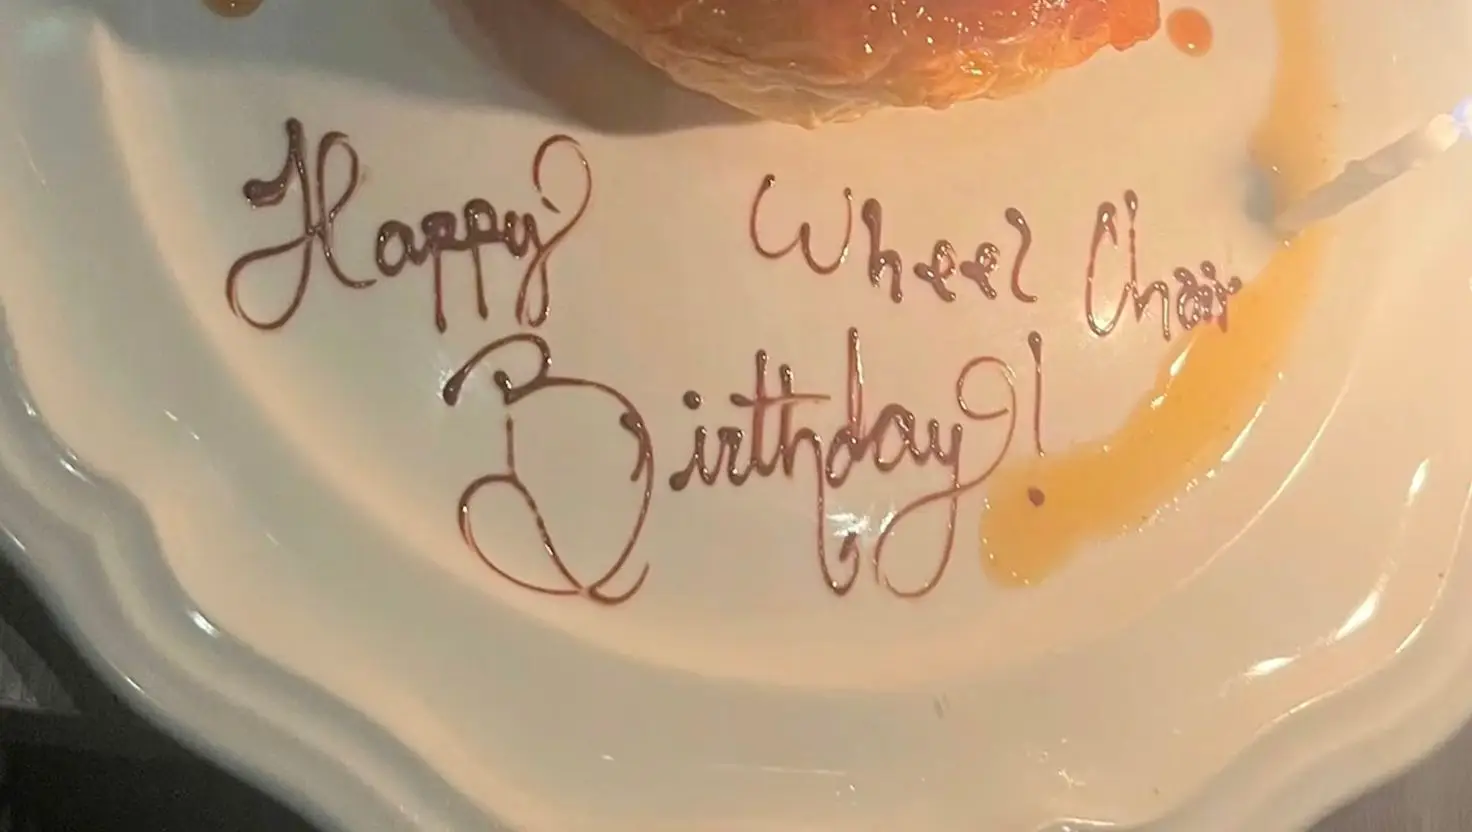 Happy Wheel Chair
Birthday!